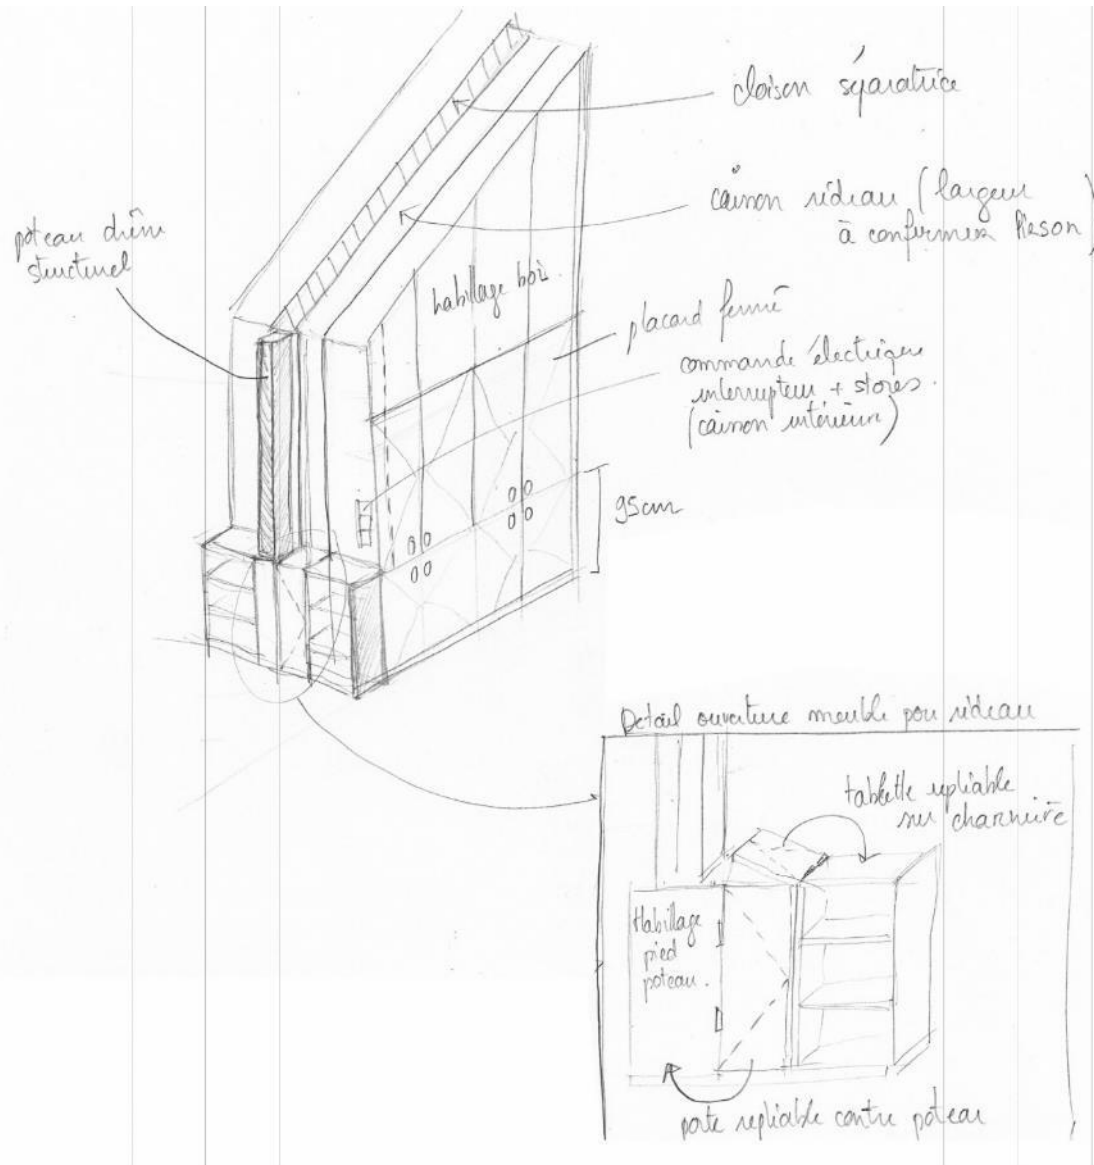 cloison séparatrice
caisson rideau (largeur
à confirmer
poteau chêne
structurel
habillage bois
placard fermé
commande électrique
interrupteur + stores.
(caisson intérieur)
95cm
Détail ouverture meuble pour rideau
tablette repliable
sur charnière
Habillage
pied
poteau.
porte repliable contre poteau